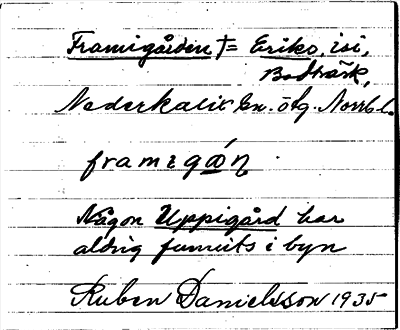 Framigården †= Eriko, isi,
Bodträsk,
Nederkalix sn. ötg. Norrb. l.
framigán
Någon Uppigård har
aldrig funnits i byn
Ruben Danielsson 1935